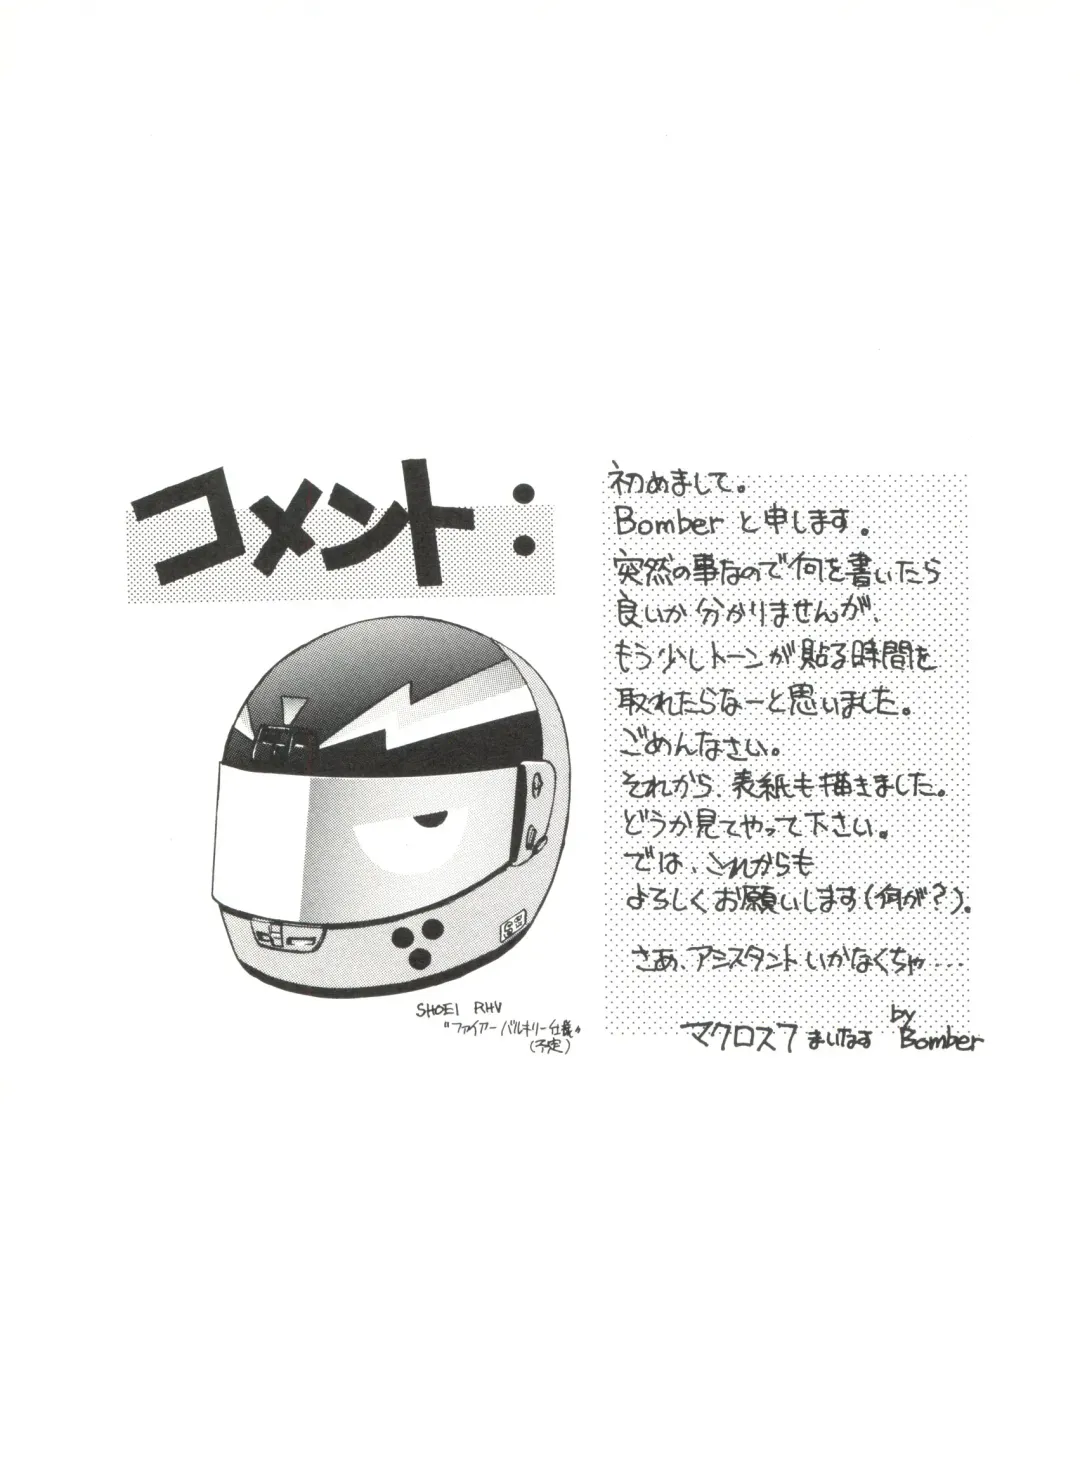 コメント:
初めまして。
Bomberと申します。
突然の事なので何を書いたら
良いか分かりませんが、
もう少しトーンが貼る時間を
取れたらなーと思いました。
ごめんなさい。
それから、表紙も描きました。
どうか見てやって下さい。
では、これからも
よろしくお願いします(何が?)。
さあ、アシスタントいかなくちゃ…
by
マクロス7 まいなす Bomber
SHOEI RHV
"ファイアーバルキリー仕様"
(予定)